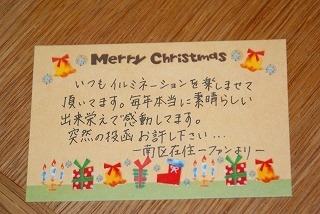 Merry Christmas
いつもイルミネーションを楽しませて
頂いてます。毎年本当に素晴らしい
出来栄えで感動してます。
突然の投函お許し下さい…
ー南区在住一ファンよりー